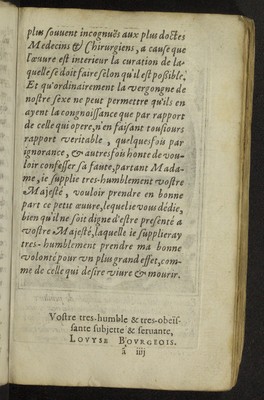 plus souuent incogneuës aux plus doctes
Medecins & Chirurgiens, a cause que
l'œuure est interieur la curation de la-
quelle se doit faire selon qu'il est poßible.
Et qu'ordinairement la vergongne de
nostre sexe ne peut permettre qu'ils en
ayent la congnoissance que par rapport
de celle qui opere, n'en faisant tousiours
rapport veritable, quelquesfois par
ignorance, & autresfois honte de vou-
loir confesser sa faute, partant Mada-
me, ie supplie tres-humblement vostre
Majesté, vouloir prendre en bonne
part ce petit œuure, lequel ie vous dédie,
bien qu'il ne soit digne d'estre presenté a
vostre Majesté, laquelle ie supplieray
tres-humblement prendre ma bonne
volonté pour vn plus grand effet, com-
me de celle qui desire viure & mourir.
Vostre tres-humble & tres-obeïs-
sante subjette & seruante,
LOVYSE BOVRGEOIS.
ã iiij